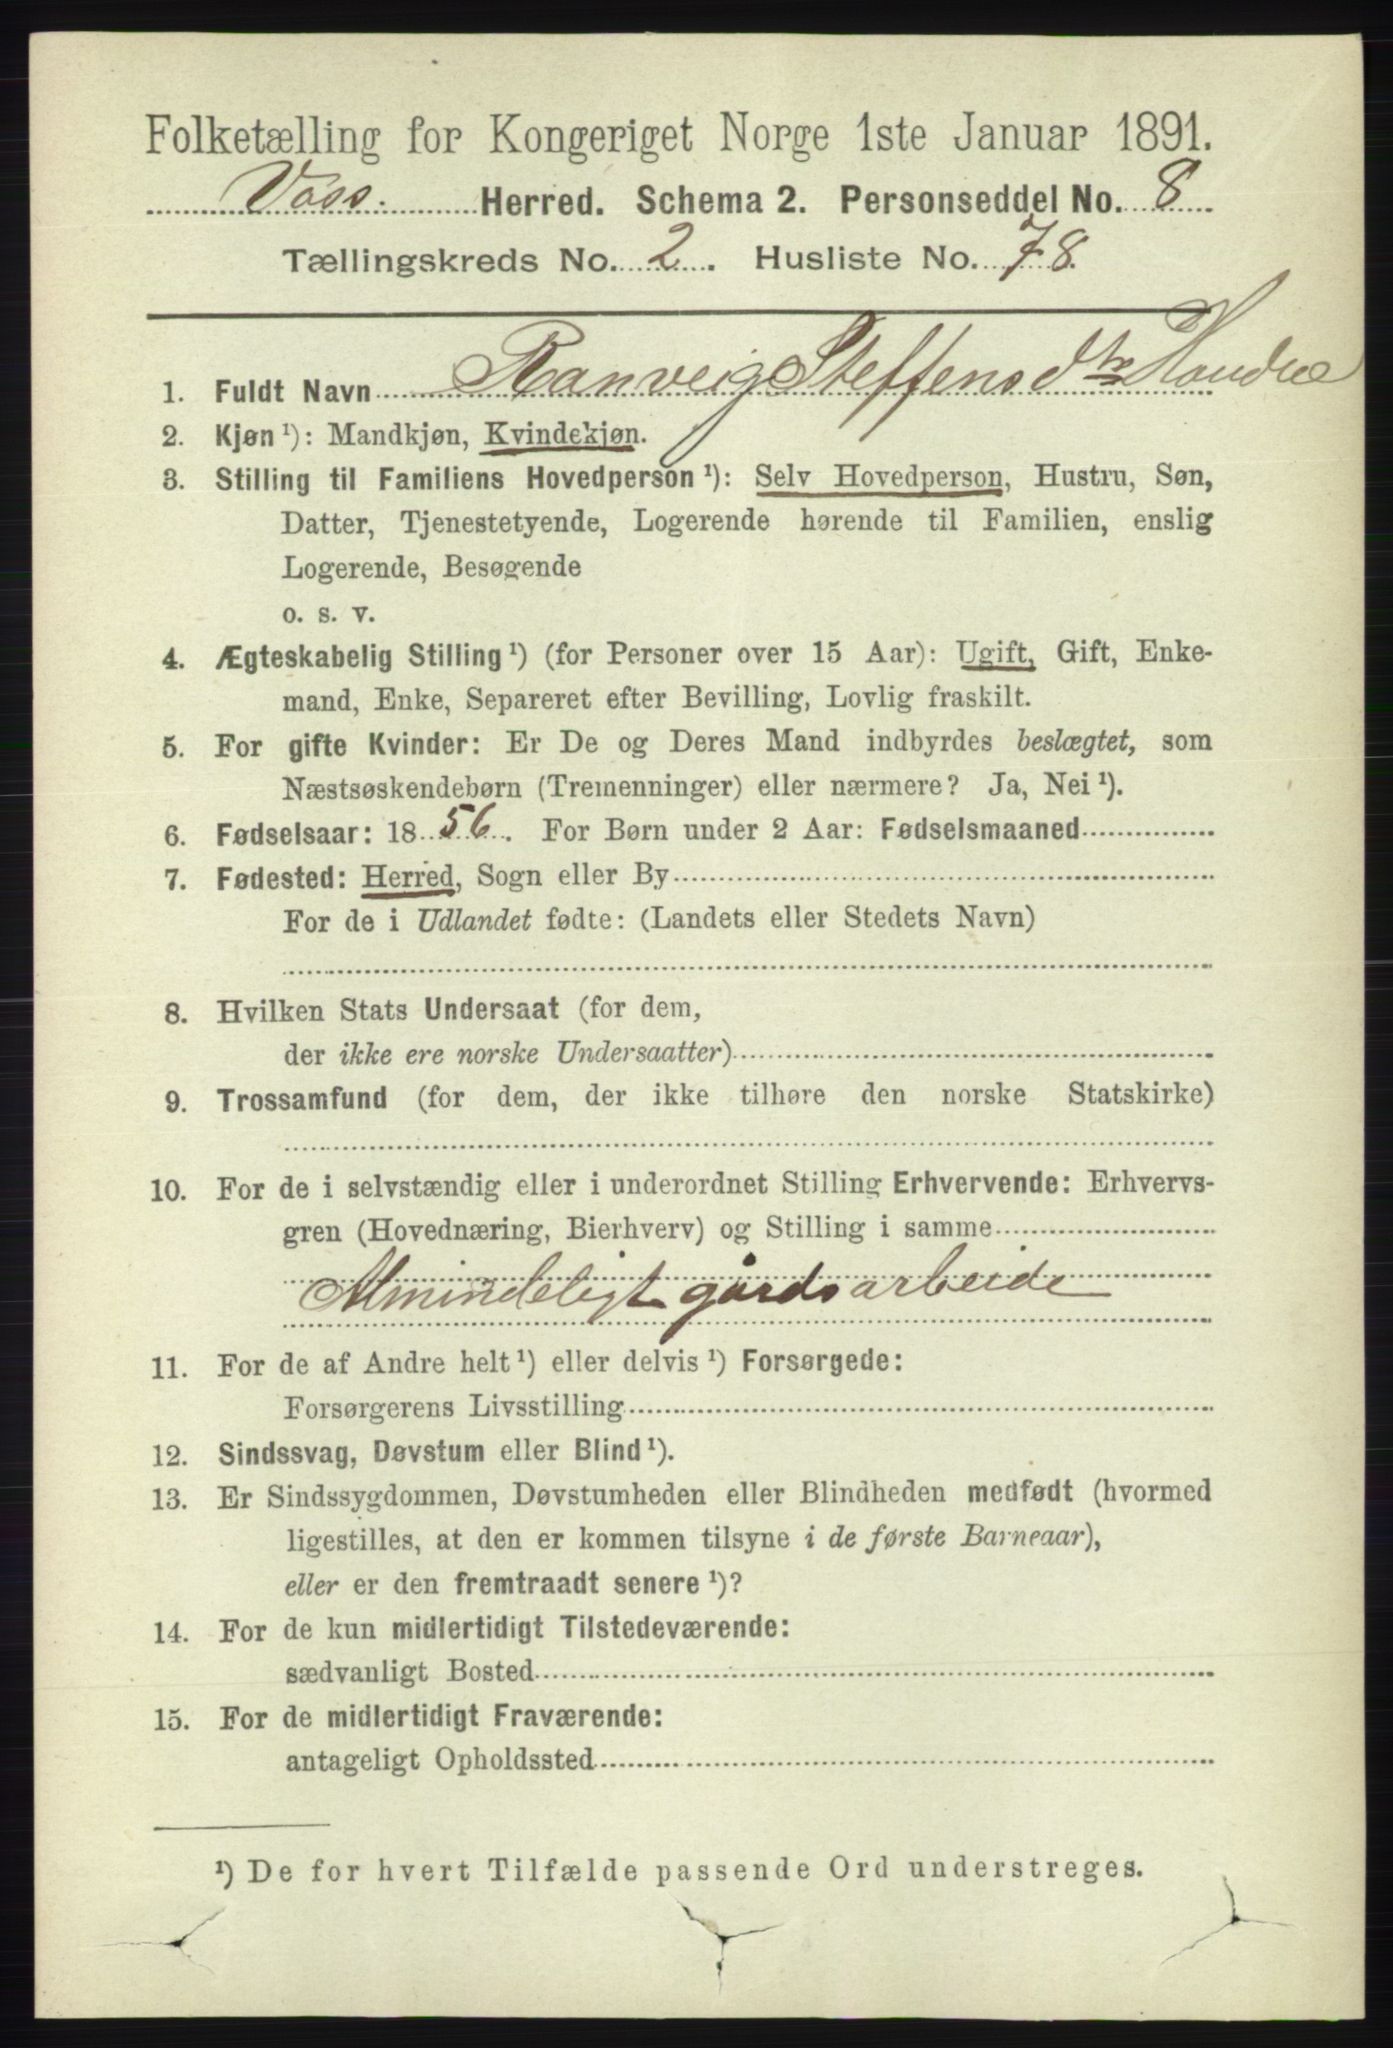 Folketælling for Kongeriget Norge 1ste Januar 1891.
Voss. Herred. Schema 2. Personseddel No. 8
Tællingskreds No. 2. Husliste No. 78.
1. Fuldt Navn Ranveig Steffensdtr
2. Kjøn ¹): Mandkjøn, Kvindekjøn.
3. Stilling til Familiens Hovedperson ¹): Selv Hovedperson, Hustru, Søn,
Datter, Tjenestetyende, Logerende hørende til Familien, enslig
Logerende, Besøgende
o. s. v.
4. Ægteskabelig Stilling ¹) (for Personer over 15 Aar): Ugift, Gift, Enke-
mand, Enke, Separeret efter Bevilling, Lovlig fraskilt.
5. For gifte Kvinder: Er De og Deres Mand indbyrdes beslægtet, som
Næstsøskendebørn (Tremenninger) eller nærmere? Ja, Nei ¹).
6. Fødselsaar: 1856. For Børn under 2 Aar: Fødselsmaaned
7. Fødested: Herred, Sogn eller By
For de i Udlandet fødte: (Landets eller Stedets Navn)
8. Hvilken Stats Undersaat (for dem,
der ikke ere norske Undersaatter)
9. Trossamfund (for dem, der ikke tilhøre den norske Statskirke)
10. For de i selvstændig eller i underordnet Stilling Erhvervende: Erhvervs-
gren (Hovednæring, Bierhverv) og Stilling i samme
Almindeligt gårdsarbeide
11. For de af Andre helt ¹) eller delvis ¹) Forsørgede:
Forsørgerens Livsstilling
12. Sindssvag, Døvstum eller Blind ¹).
13. Er Sindssygdommen, Døvstumheden eller Blindheden medfødt (hvormed
ligestilles, at den er kommen tilsyne i de første Barneaar),
eller er den fremtraadt senere ¹)?
14. For de kun midlertidigt Tilstedeværende:
sædvanligt Bosted
15. For de midlertidigt Fraværende:
antageligt Opholdssted
¹) De for hvert Tilfælde passende Ord understreges.